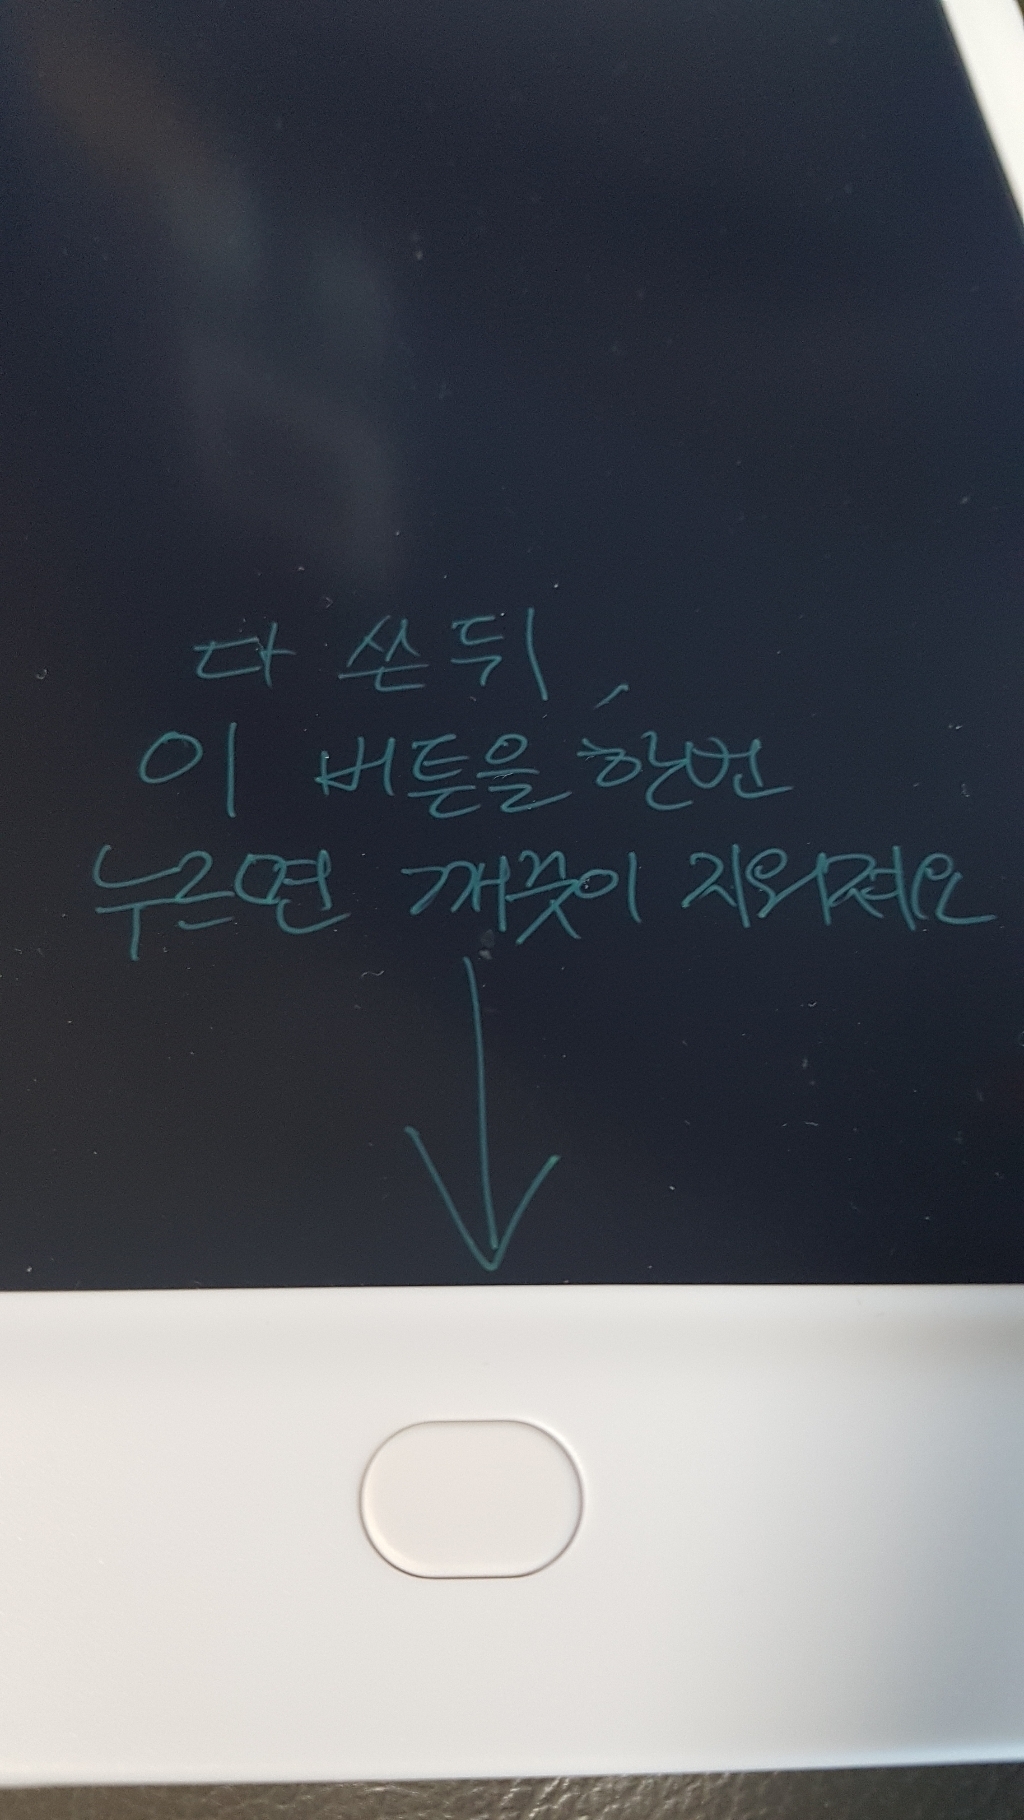 다 쓴 뒤
이 버튼을 한번
누르면 깨끗이 지워져요